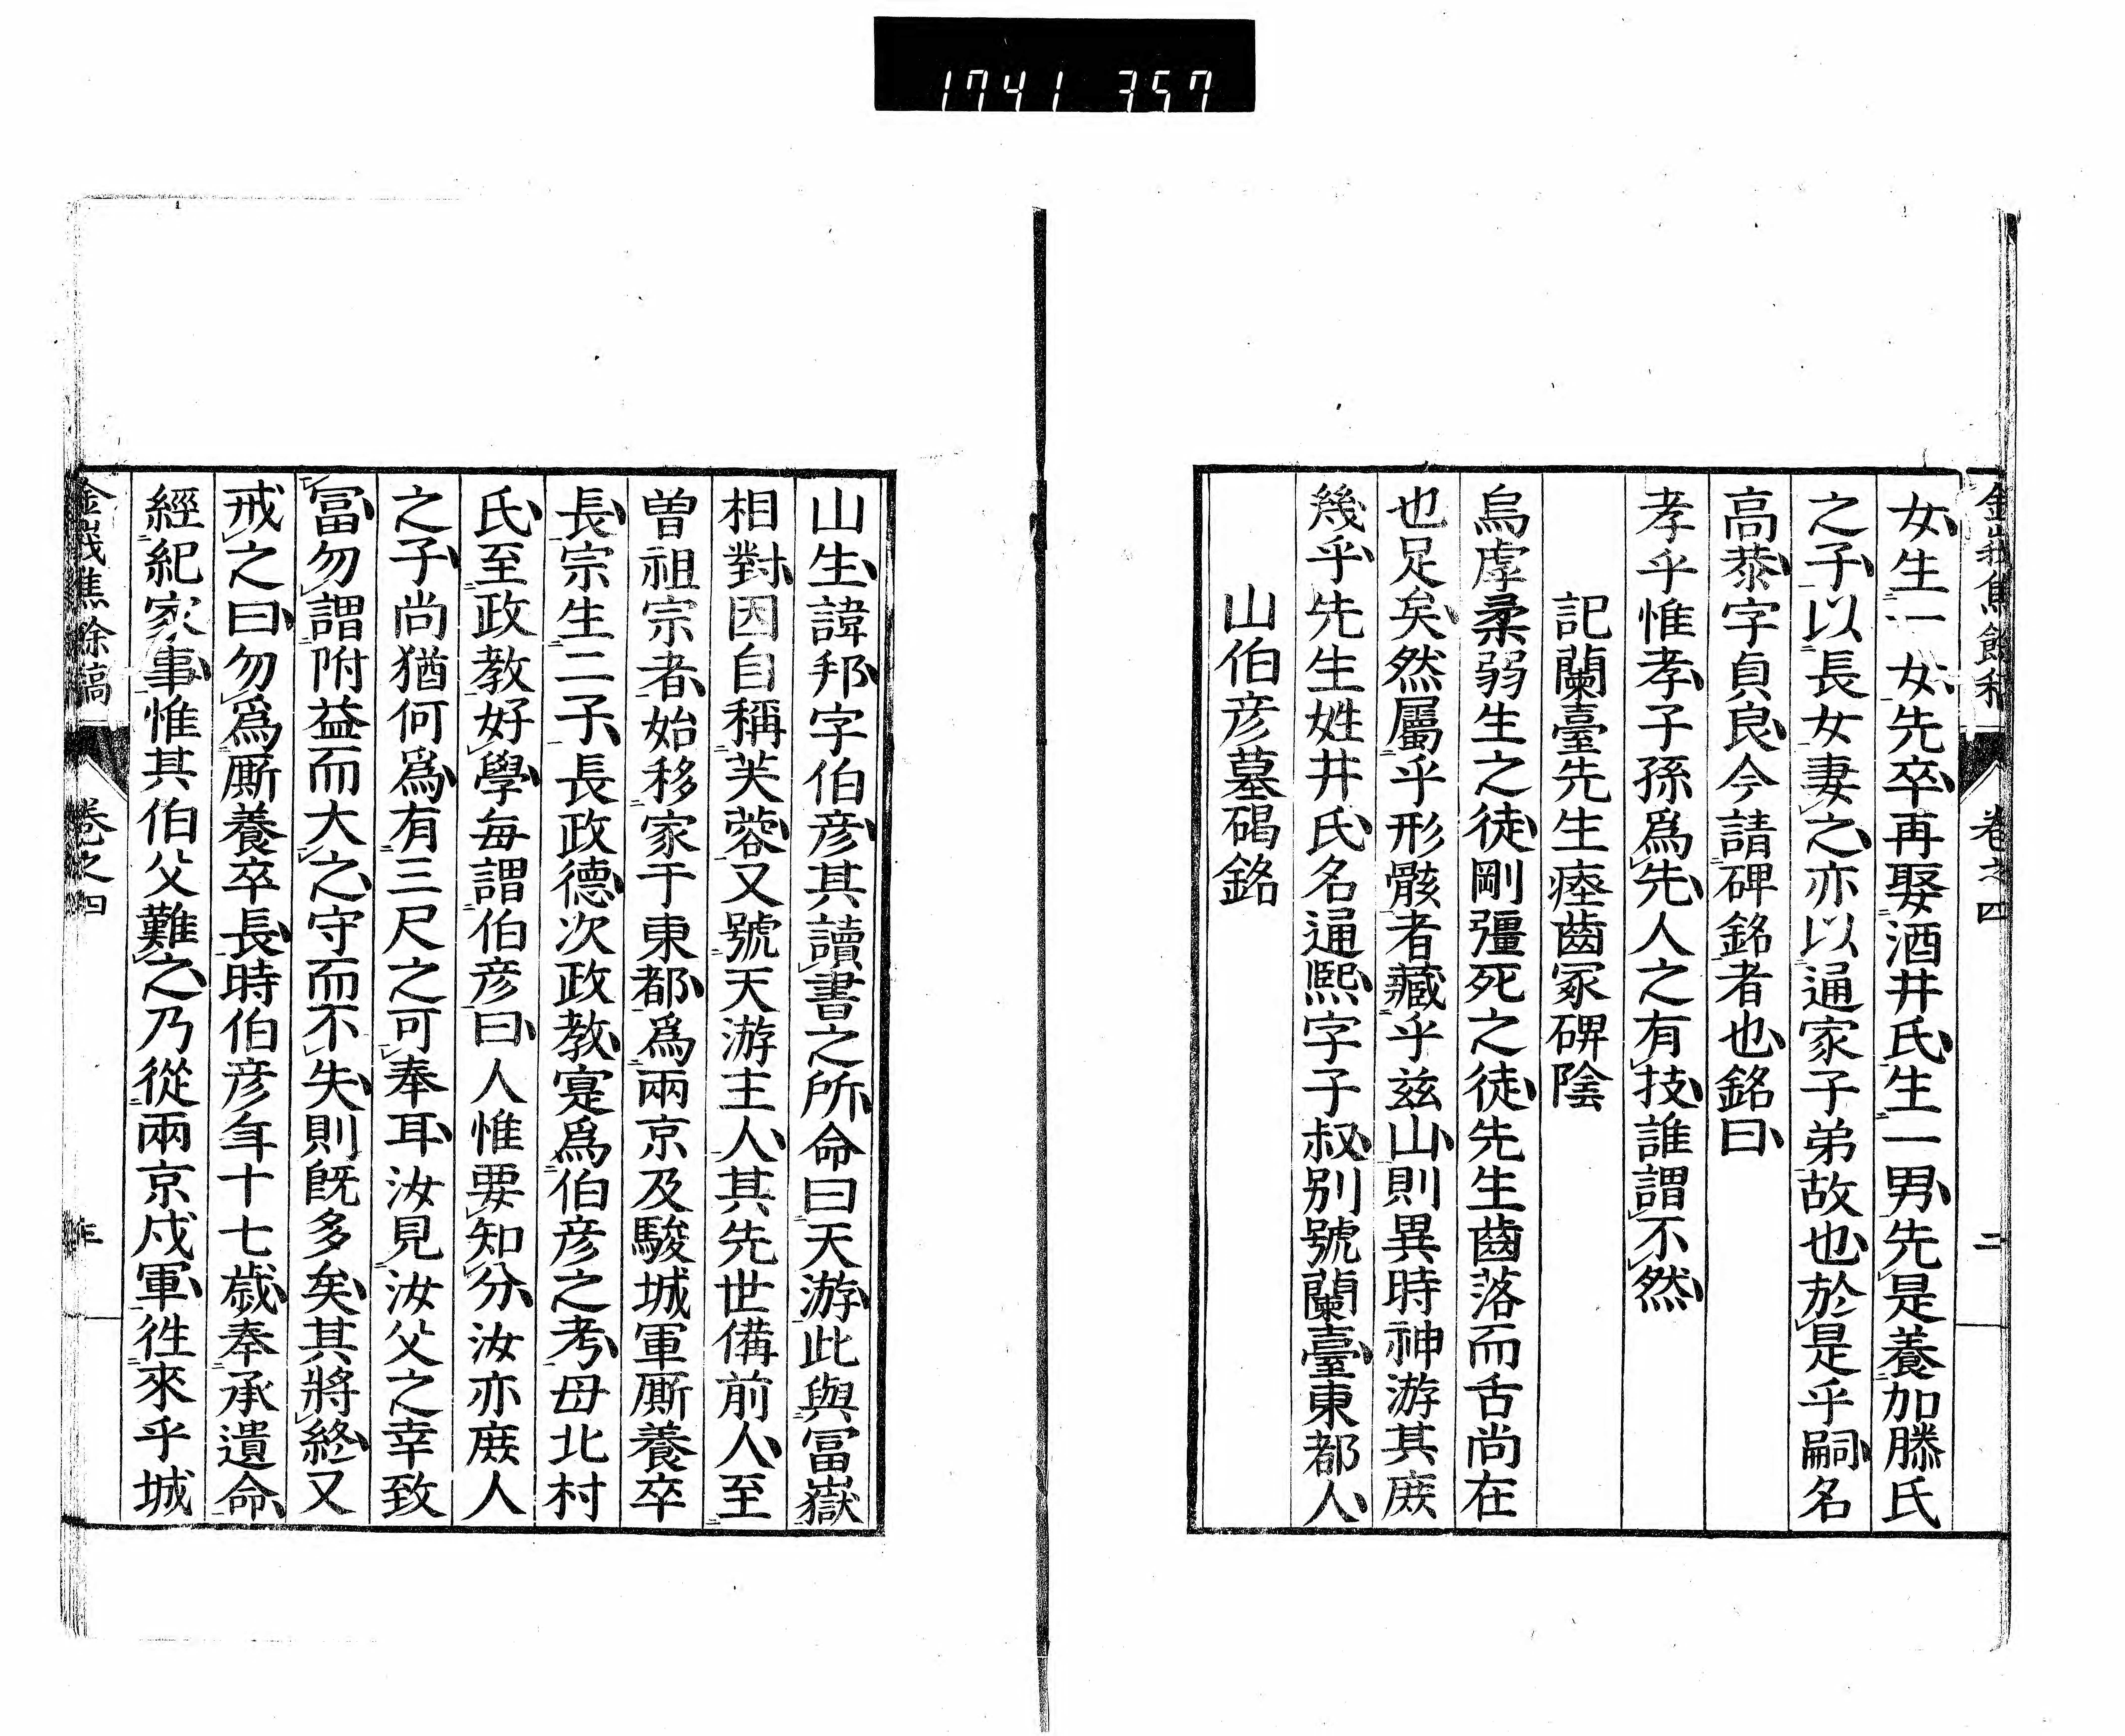 1741 357
金峩焦餘稿 卷之四 二
女生一女先卒再娶酒井氏生一男先是養加勝氏
之子以長女妻之亦以通家子弟故也於是乎嗣名
高恭字貞良今請碑銘者也銘曰
孝乎惟孝子孫爲先人之有技誰謂不然
記蘭臺先生瘞齒冢碑陰
烏虖柔弱生之徒剛彊死之徒先生齒落而舌尚在
也足矣然屬乎形骸者藏乎茲山則異時神游其庶
幾乎先生姓井氏名通熙字子叔別號蘭臺東都人
山伯彦墓碣銘
山生諱邦字伯彦其讀書之所命曰天游此與冨嶽
相對因自稱芙蓉又號天游主人其先世備前人至
曽祖宗者始移家于東都爲兩京及駿城軍厮養卒
長宗生二子長政德次政教寔爲伯彦之考母北村
氏至政教好學每謂伯彦曰人惟要知分汝亦庶人
之子尚猶何爲有三尺之可奉耳汝見汝父之幸致
冨勿謂附益而大之守而不失則既多矣其將終又
戒之曰勿爲厮養卒長時伯彦年十七歲奉承遺命
經紀家事惟其伯父難之乃從兩京戍軍徃來乎城
金峩焦餘稿 卷之四